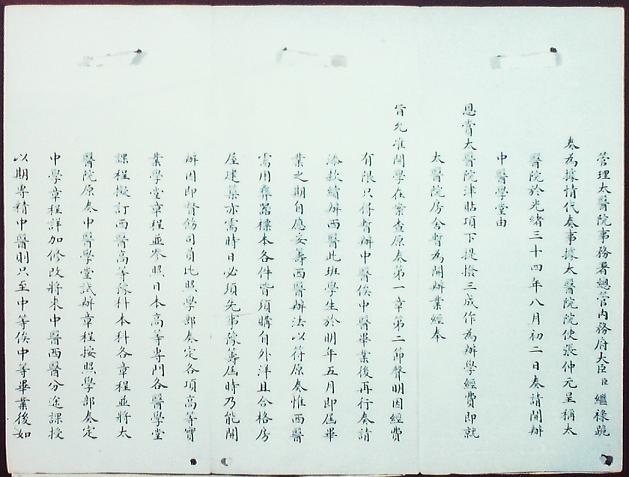 管理太醫院事務署總管內務府大臣臣繼祿跪
奏為據情代奏事據太醫院院使張仲元呈稱太
醫院於光緒三十四年八月初二日奏請開辦
中醫學堂由
恩賞太醫院津貼項下提撥三成作為辦學經費即就
太醫院房舍暫為開辦業經奏
旨允准開學在案查原奏第一章第二節聲明因經費
有限只得暫辦中醫俟中醫畢業後再行奏請
添款續辦西醫此班學生於明年五月即屆畢
業之期自應妥籌西醫辦法以符原奏惟西醫
需用彝器標本各件皆須購自外洋且合格房
屋建築亦需時日必須先事綢繆屆時乃能開
辦因即督飭司員地照學部奏定各項高等實
業學堂章程並參照日本高等專門各醫學堂
課程擬訂西醫高等豫科本科各章程並將太
醫院原奏中醫學堂試辦章程按照學部奏定
中學章程詳加修改將來中醫西醫分途課授
以期專精中醫則只至中等俟中等畢業後如